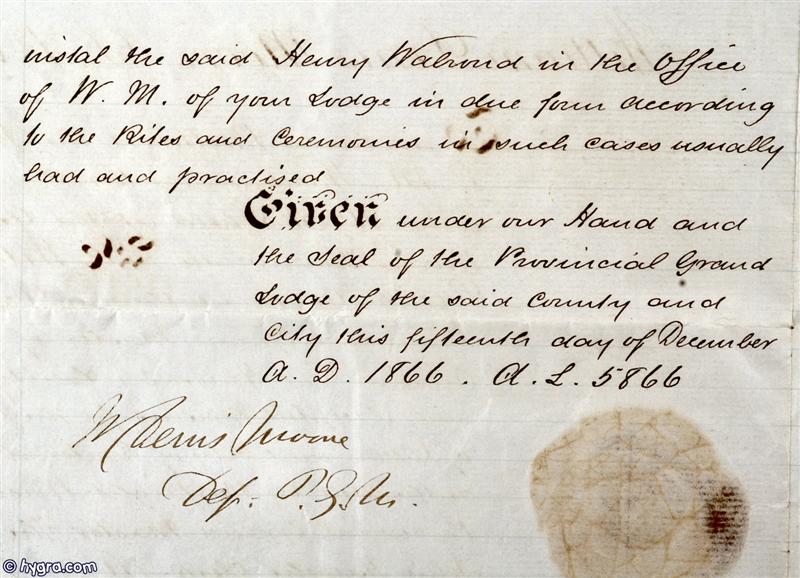 instal the said Henry Walrond in the Office
of W. M. of your Lodge in due form according
to the Rites and Ceremonies in such cases usually
had and practised
Given under our Hand and
the Seal of the Provincial Grand
Lodge of the said County and
City this fifteenth day of December
A. D. 1866 . A. L. 5866
W Denis Moore
Dep. P. G. M.
© hygra.com